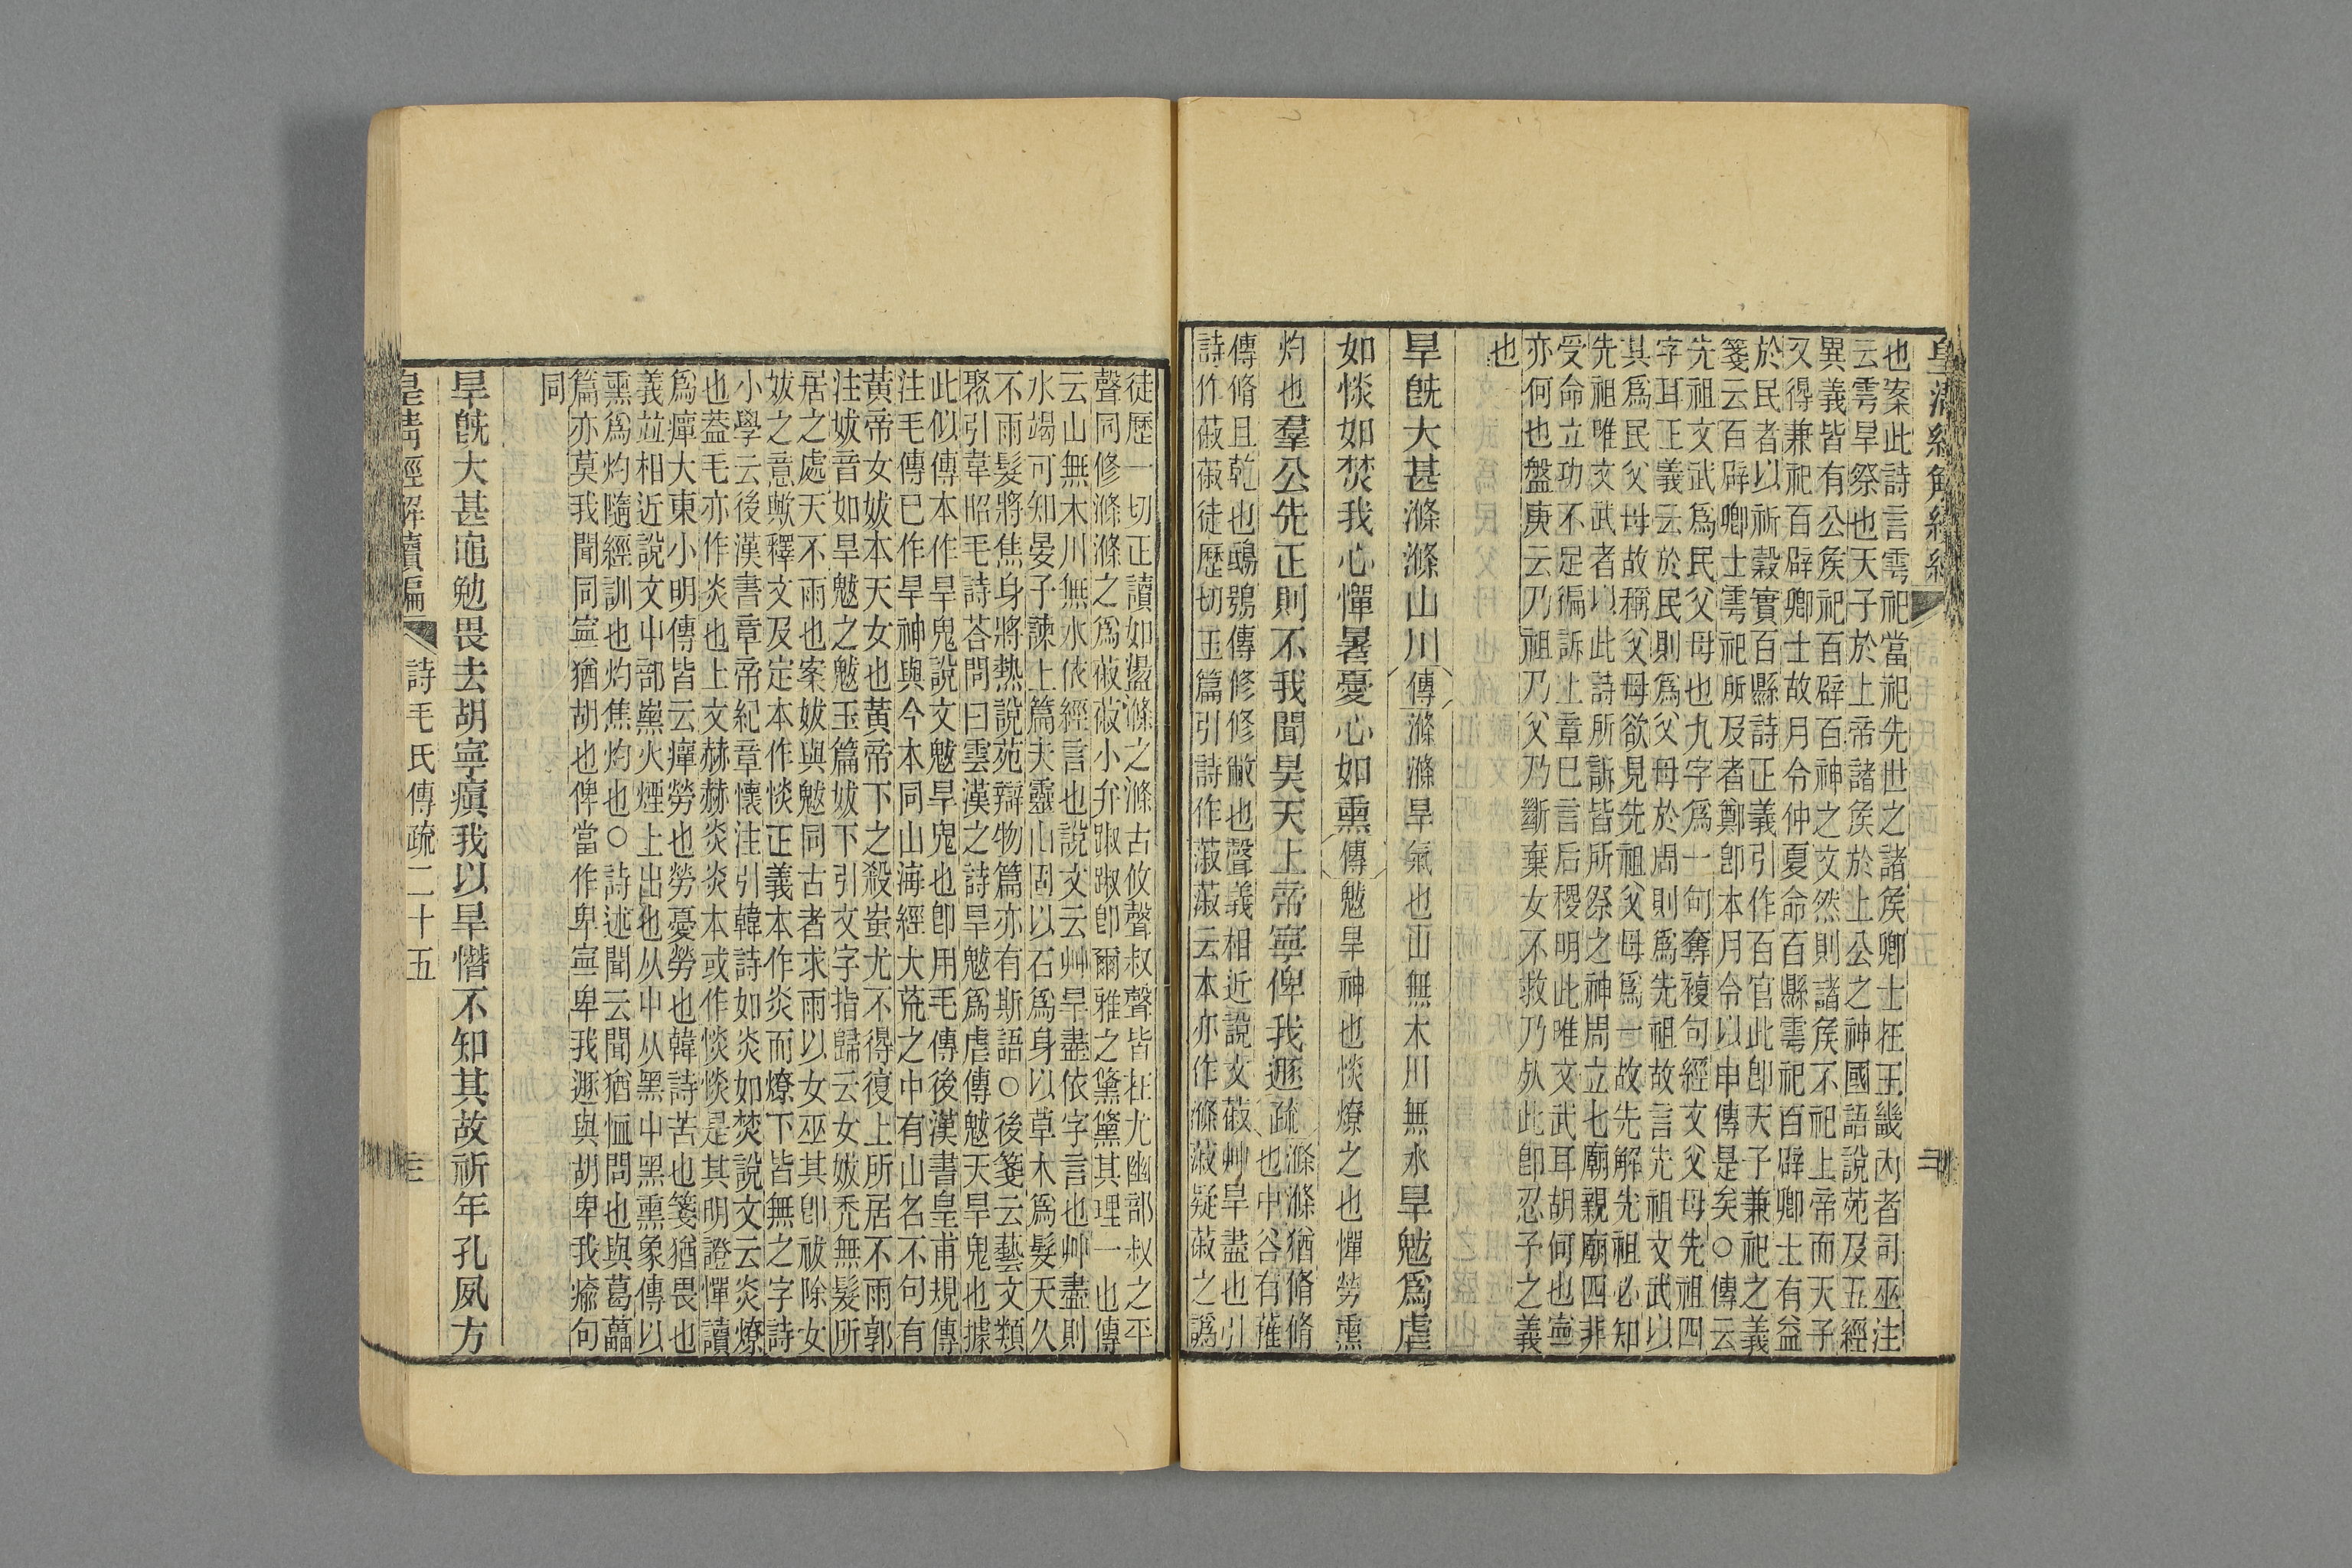 皇清經解續編
也案此詩言雩祀當祀先世之諸矦卿士在王畿內者司巫注
云雩旱祭也天子於上帝諸矦於上公之神國語說苑及五經
異義皆有公矦祀百辟百神之文然則諸矦不祀上帝而天子
又得兼祀百辟卿士故月令仲夏命百縣雩祀百辟卿士有益
於民者以祈穀實百縣詩正義引作百官此卽天子兼祀之義
箋云百辟卿士雩祀所及者鄭卽本月令以申傳是矣○傳云
先祖文武爲民父母也九字爲一句奪複句經文父母先祖四
字耳正義云於民則爲父母於周則爲先祖故言先祖文武以
其爲民父母故稱父母欲見先祖父母爲一故先解先祖必知
先祖唯文武者以此詩所訴皆所祭之神周立七廟親廟四非
受命立功不足徧訴上章巳言后稷明此唯文武耳胡何也寍
亦何也盤庚云乃祖乃父乃斷棄女不救乃死此卽忍予之義
也
旱旣大甚滌滌山川傳滌滌旱氣也山無木川無水旱魃爲虐
如惔如焚我心憚暑憂心如熏傳魃旱神也惔燎之也憚勞熏
灼也羣公先正則不我聞昊天上帝寧俾我遯疏滌滌猶脩脩
也中谷有蓷
傳脩且乾也鴟鴞傳修修敝也聲義相近說文蔋艸旱盡也引
詩作蔋蔋徒歷切玉篇引詩作菽菽云本亦作滌菽疑蔋之譌
徒歷一切正讀如盪滌之滌古攸聲叔聲皆在尤幽部叔之平
聲同修滌滌之爲蔋蔋小弁踧踧卽爾雅之儵儵其理一也傳
云山無木川無水依經言也說文云艸旱盡依字言也艸盡則
水竭可知晏子諫上篇夫靈山固以石爲身以草木爲髮天久
不雨髮將焦身將熱說苑辯物篇亦有斯語○後箋云藝文類
聚引韋昭毛詩荅問曰雲漢之詩旱魃爲虐傳魃天旱鬼也據
此似傳本作旱鬼說文魃旱鬼也卽用毛傳後漢書皇甫規傳
注毛傳巳作旱神與今本同山海經大荒之中有山名不句有
黃帝女妭本天女也黃帝下之殺蚩尤不得復上所居不雨郭
注妭音如旱魃之魃玉篇妭下引文字指歸云女妭禿無髮所
居之處天不雨也案妭與魃同古者求雨以女巫其卽祓除女
妭之意歟釋文及定本作惔正義本作炎而燎下皆無之字詩
小學云後漢書章帝紀章懷注引韓詩如炎如焚說文云炎燎
也葢毛亦作炎也上文赫赫炎炎本或作惔惔是其明證憚讀
爲癉大東小明傳皆云癉勞也勞憂勞也韓詩苦也箋猶畏也
義竝相近說文屮部熏火煙上出也从屮从黑屮黑熏象傳以
熏爲灼隨經訓也灼焦灼也○詩述聞云聞猶恤問也與葛藟
篇亦莫我聞同寍猶胡也俾當作卑寍卑我遯與胡卑我瘉句
同
旱旣大甚黽勉畏去胡寧瘨我以旱憯不知其故祈年孔夙方
皇清經解續編 詩毛氏傳疏二十五